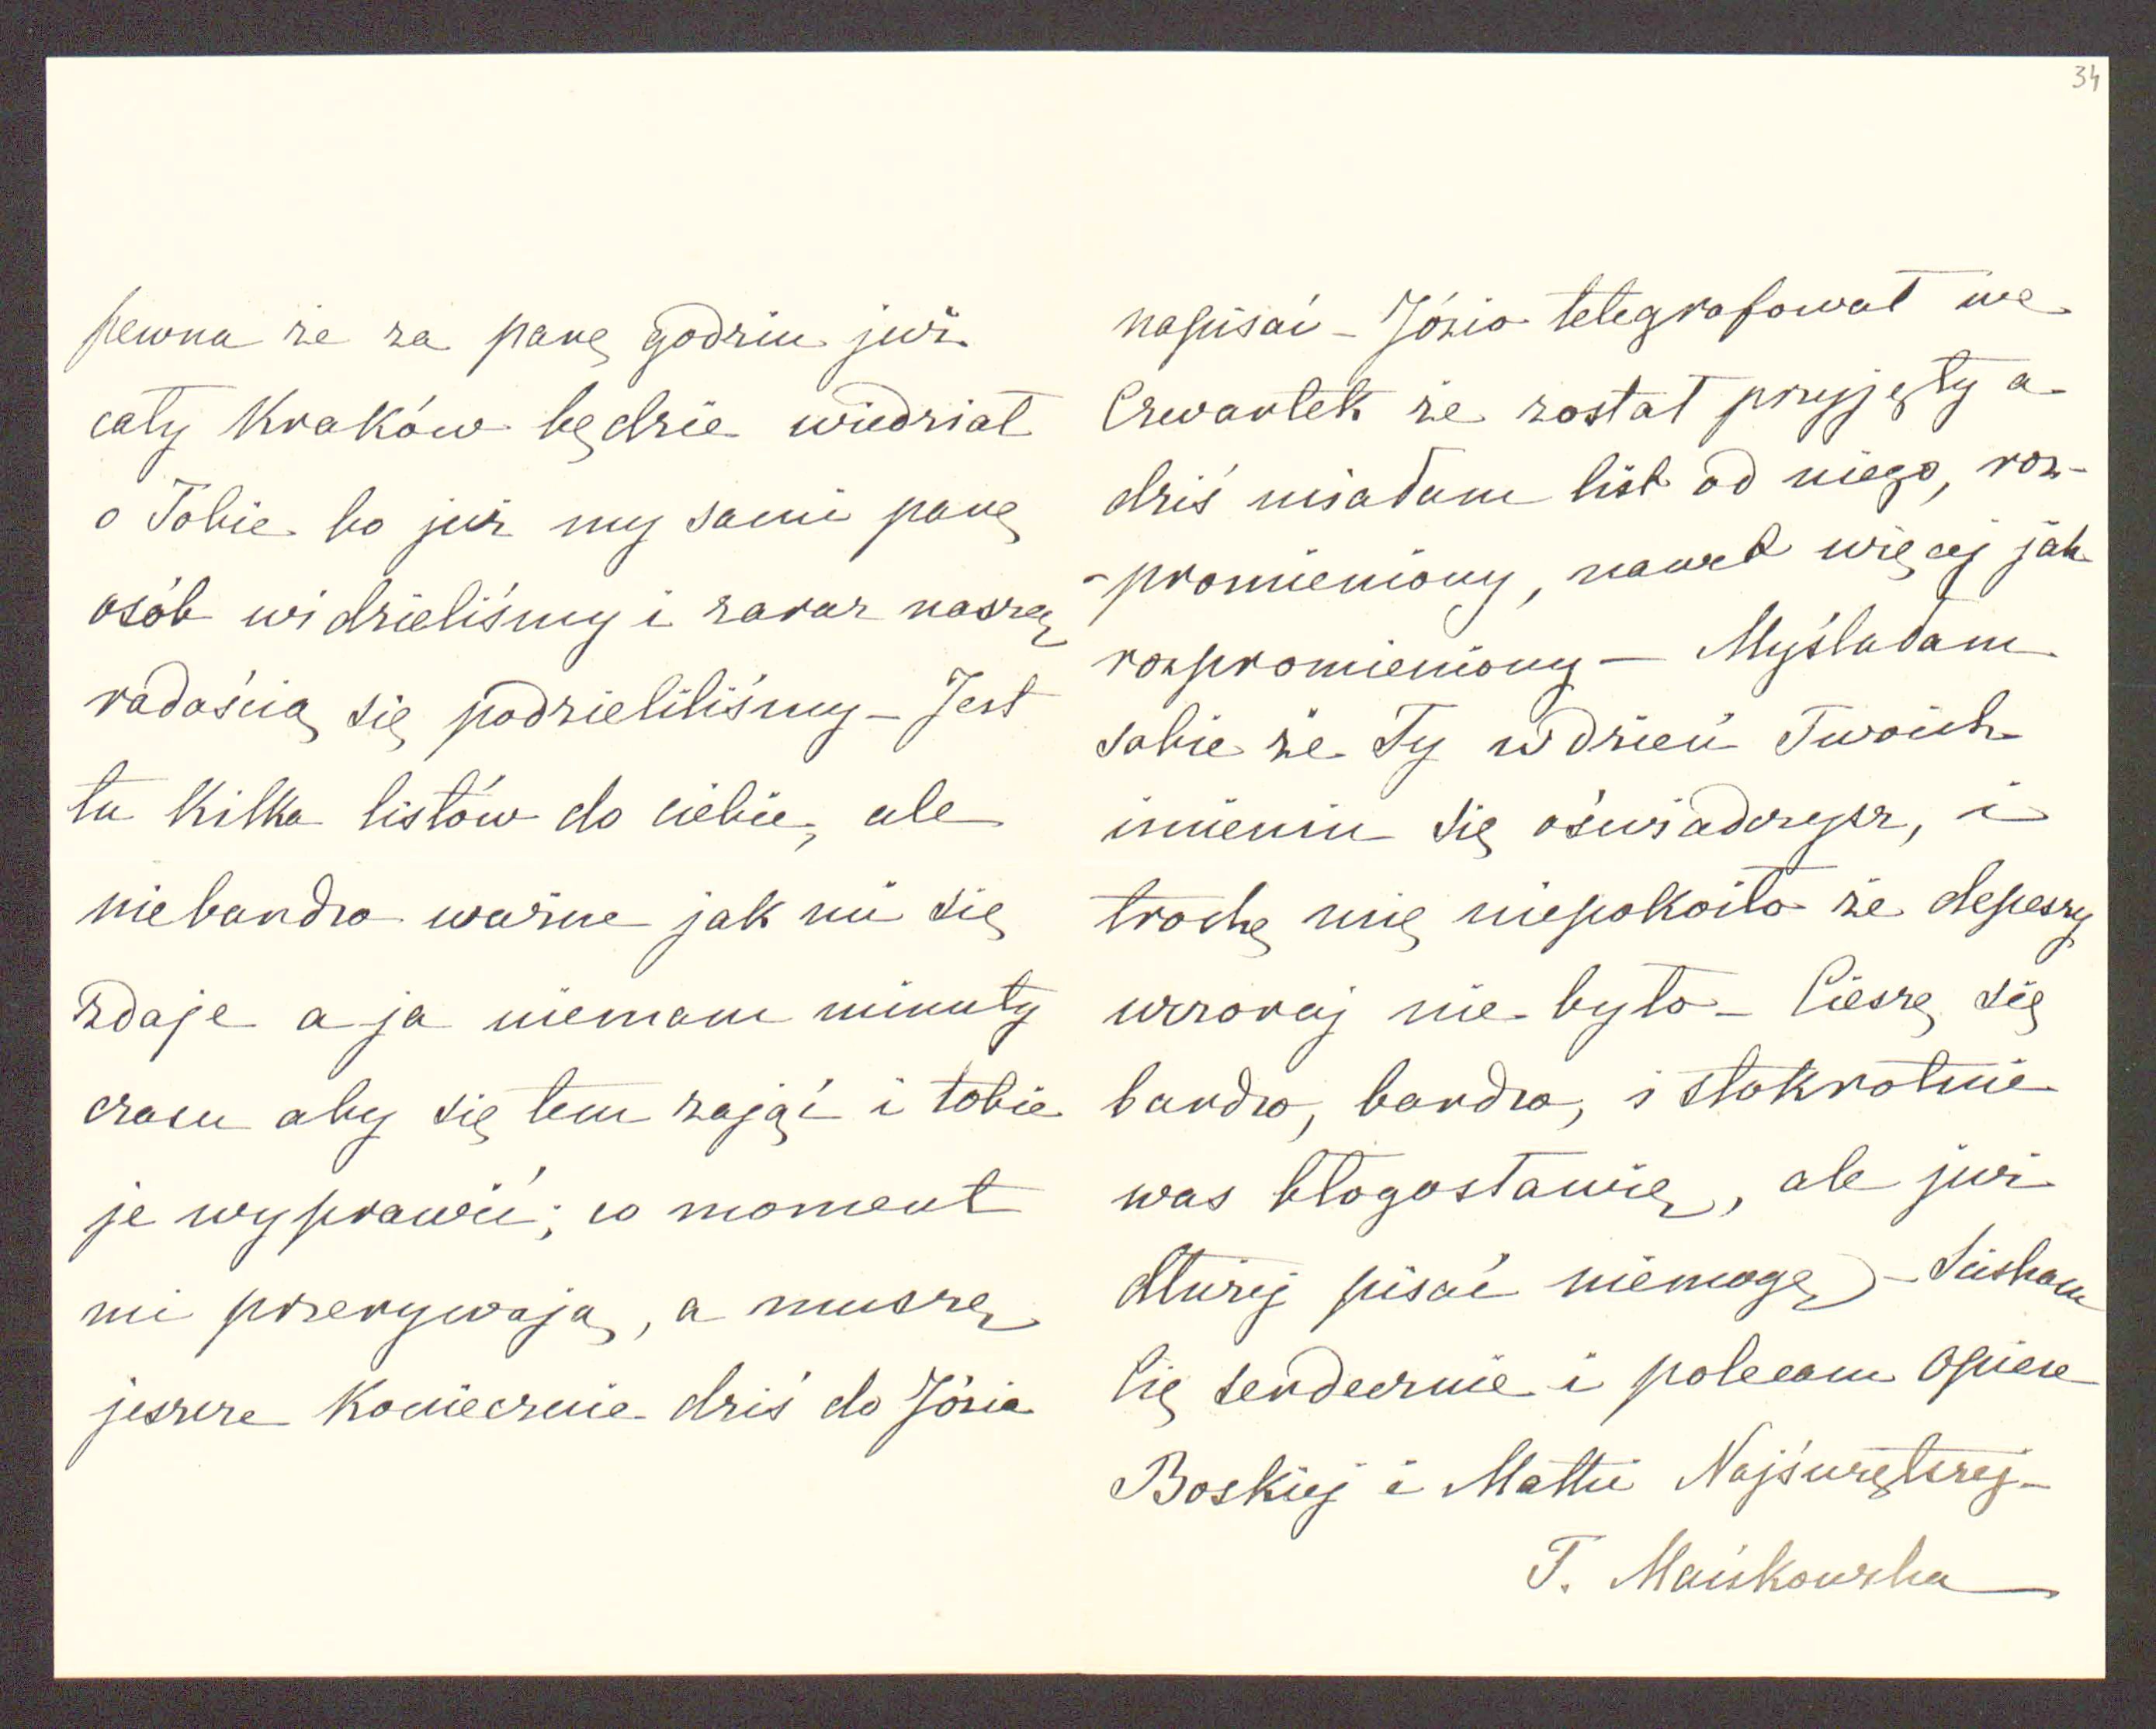 34
pewna że za parę godzin już
cały Kraków będzie wiedział
o Tobie bo już my sami parę
osób widzieliśmy i zaraz naszą
radością się podzieliliśmy – Jest
tu kilka listów do ciebie, ale
niebardzo ważne jak mi się
zdaje a ja niemam minuty
czasu aby się tem zająć i tobie
je wyprawić; co moment
mi przerywają, a muszę
jeszcze koniecznie dziś do Józia
napisać – Józio telegrafował we
Czwartek że został przyjęty a
dziś miałam list od niego, roz-
-promieniony, nawet więcej jak
rozpromieniony – Myślałam
sobie że Ty w dzień Twoich
imienin się oświadczysz, i
trochę mię niepokoiło że depeszy
wczoraj nie było – Cieszę się
bardzo, bardzo, i stokrotnie
was błogosławię, ale już
dłużej pisać niemogę – Ściskam
Cię serdecznie i polecam Opiece
Boskiej i Matki Najświętszej –
T. Mańkowska